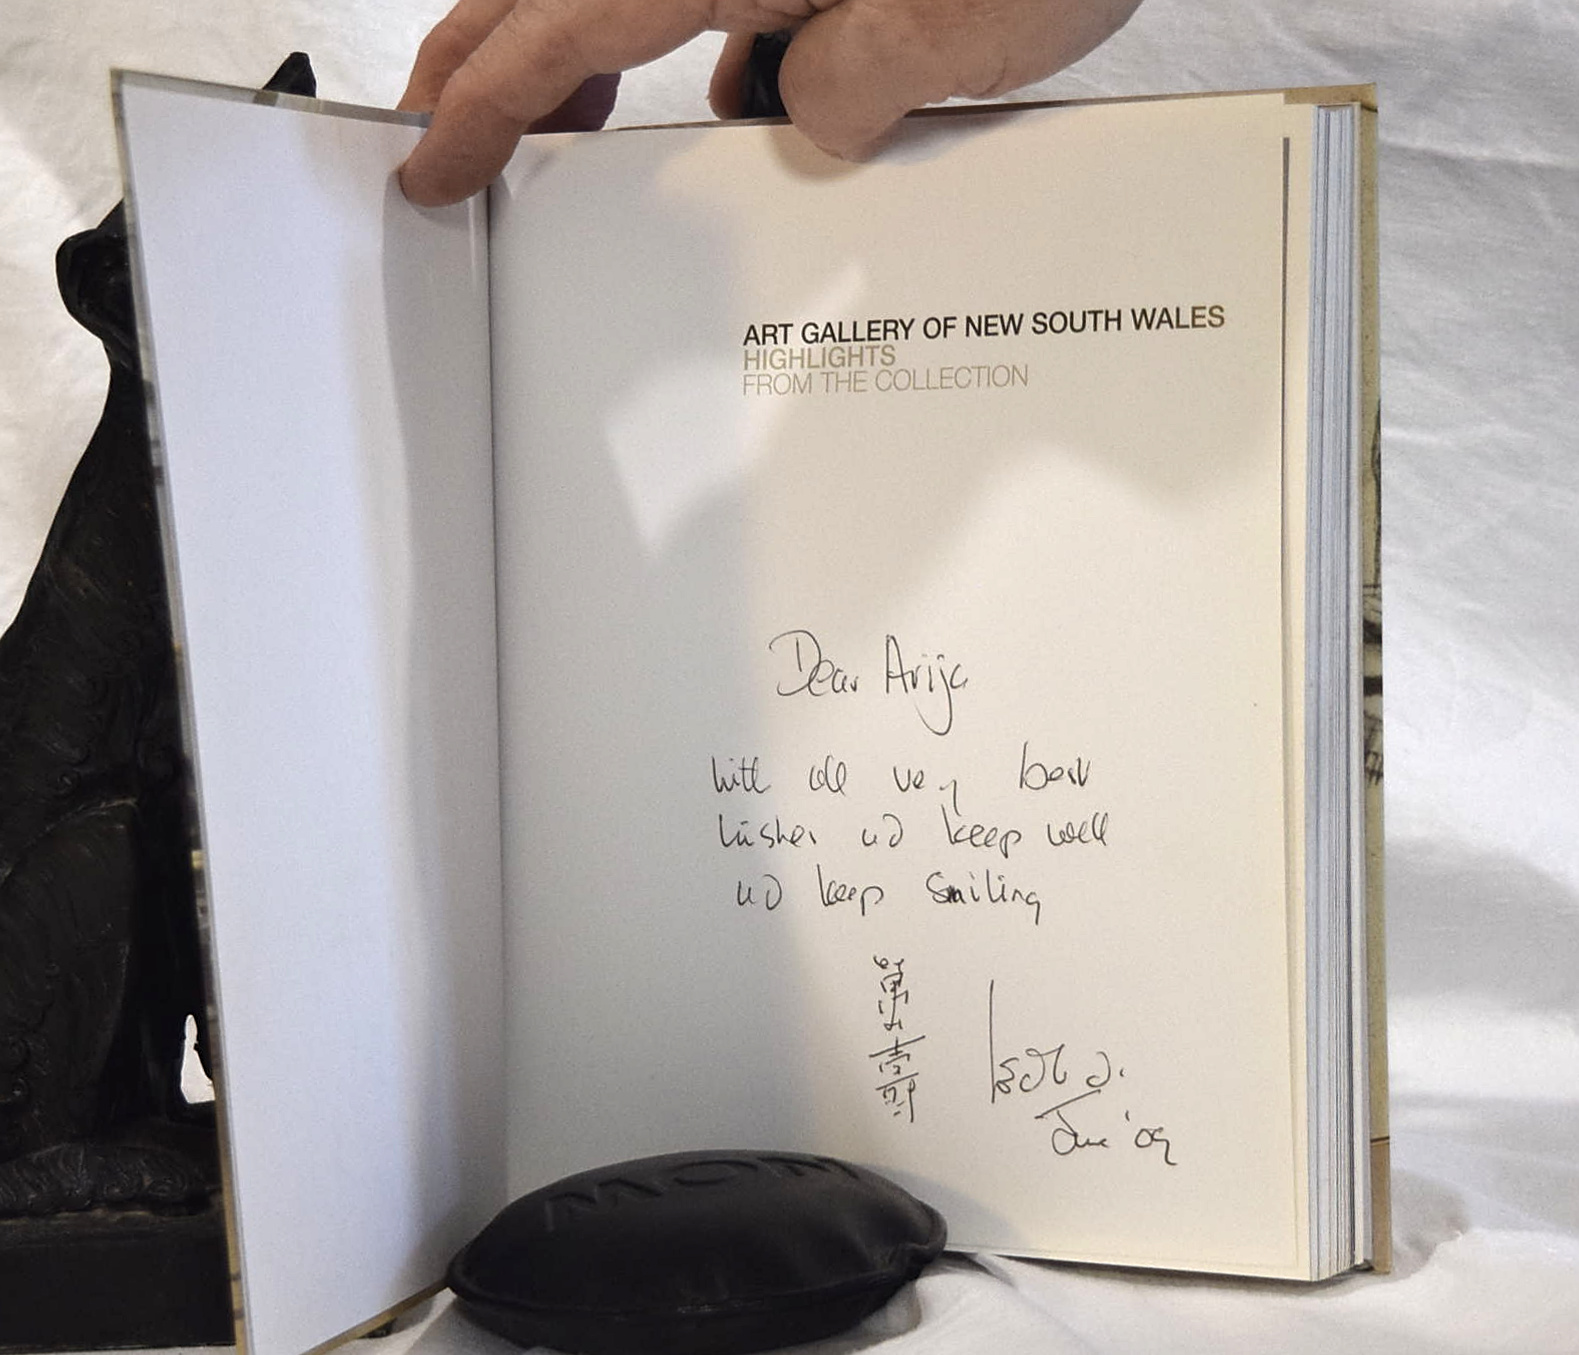 ART GALLERY OF NEW SOUTH WALES
HIGHLIGHTS
FROM THE COLLECTION
Dear Arija
with all very best
wishes and keep well
and keep smiling
June '09
MOM